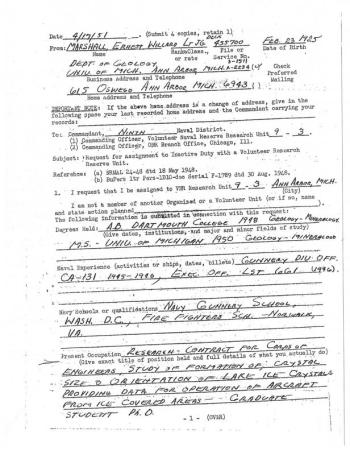 Date 4/17/51 (Submit 4 copies, retain 1)
From: MARSHALL, ERNEST WILLARD LTJG 455700 FEB. 23 1925
Name Rank&Class. File or Date of Birth
or rate Service No.
DEPT. OF GEOLOGY 3-1511
UNIV. OF MICH. ANN ARBOR, MICH. Check
Business address and Telephone Preferred
615 OSWEGO ANN ARBOR, MICH. 6943 ( ) Mailing
Home address and Telephone
IMPORTANT NOTE: If the above home address is a change of address, give in the
following space your last recorded home address and the Commandant carrying your
records:
To: Commandant, NINTH Naval District.
(1) Commanding Officer, Volunteer Naval Reserve Research Unit 9-3.
(2) Commanding Officer, ONR Branch Office, Chicago, Ill.
Subject: Request for Assignment to Inactive Duty with a Volunteer Research
Reserve Unit.
Reference: (a) BRNAL 24-48 dtd 18 May 1948.
(b) BuPers ltr Pers-1D10-doc Serial F-1789 dtd 30 Aug. 1948.
1. I request that I be assigned to VNR Research Unit 9-3, ANN ARBOR, MICH.
(City)
I am not a member of another Organized or a Volunteer Unit (or if so, name
and state action planned
The following information is submitted in connection with this request:
Degrees Held: A.B. DARTMOUTH COLLEGE 1948 GEOLOGY-MINERALOGY
(Give dates, institutions, and major and minor fields of study)
M.S. - UNIV. OF MICHIGAN 1950 GEOLOGY-MINERALOGY
Naval Experience (activities or ships, dates, billets) GUNNERY DIV OFF.
CA-131 1945-1946, EXEC. OFF. LST 661 (1946).
Navy Schools or qualifications NAVY GUNNERY SCHOOL,
WASH. D.C., FIRE FIGHTERS SCH. - NORFOLK,
VA.
Present Occupation RESEARCH - CONTRACT FOR CORPS OF
(Give exact title of position held and full details of what you actually do)
ENGINEERS, STUDY OF FORMATION OF, CRYSTAL
SIZE & ORIENTATION OF LAKE ICE CRYSTALS
PROVIDING DATA FOR OPERATION OF AIRCRAFT
FROM ICE COVERED AREAS - GRADUATE
STUDENT PH.D.
- 1 - (OVER)